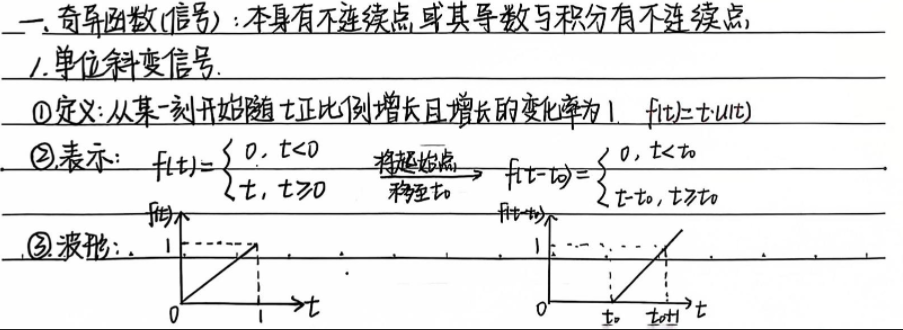 一、奇异函数(信号):本身有不连续点或其导数与积分有不连续点
1.单位斜变信号.
①定义:从某一刻开始随t正比例增长且增长的变化率为1. f(t)=t·u(t)
②表示: f(t)={0, t<0 将起始点 f(t-t₀)={0, t<t₀
{t, t≥0 移至t₀ {t-t₀, t≥t₀
③波形: f(t) 1 0 1 t f(t-t₀) 1 0 t₀ t₀+1 t